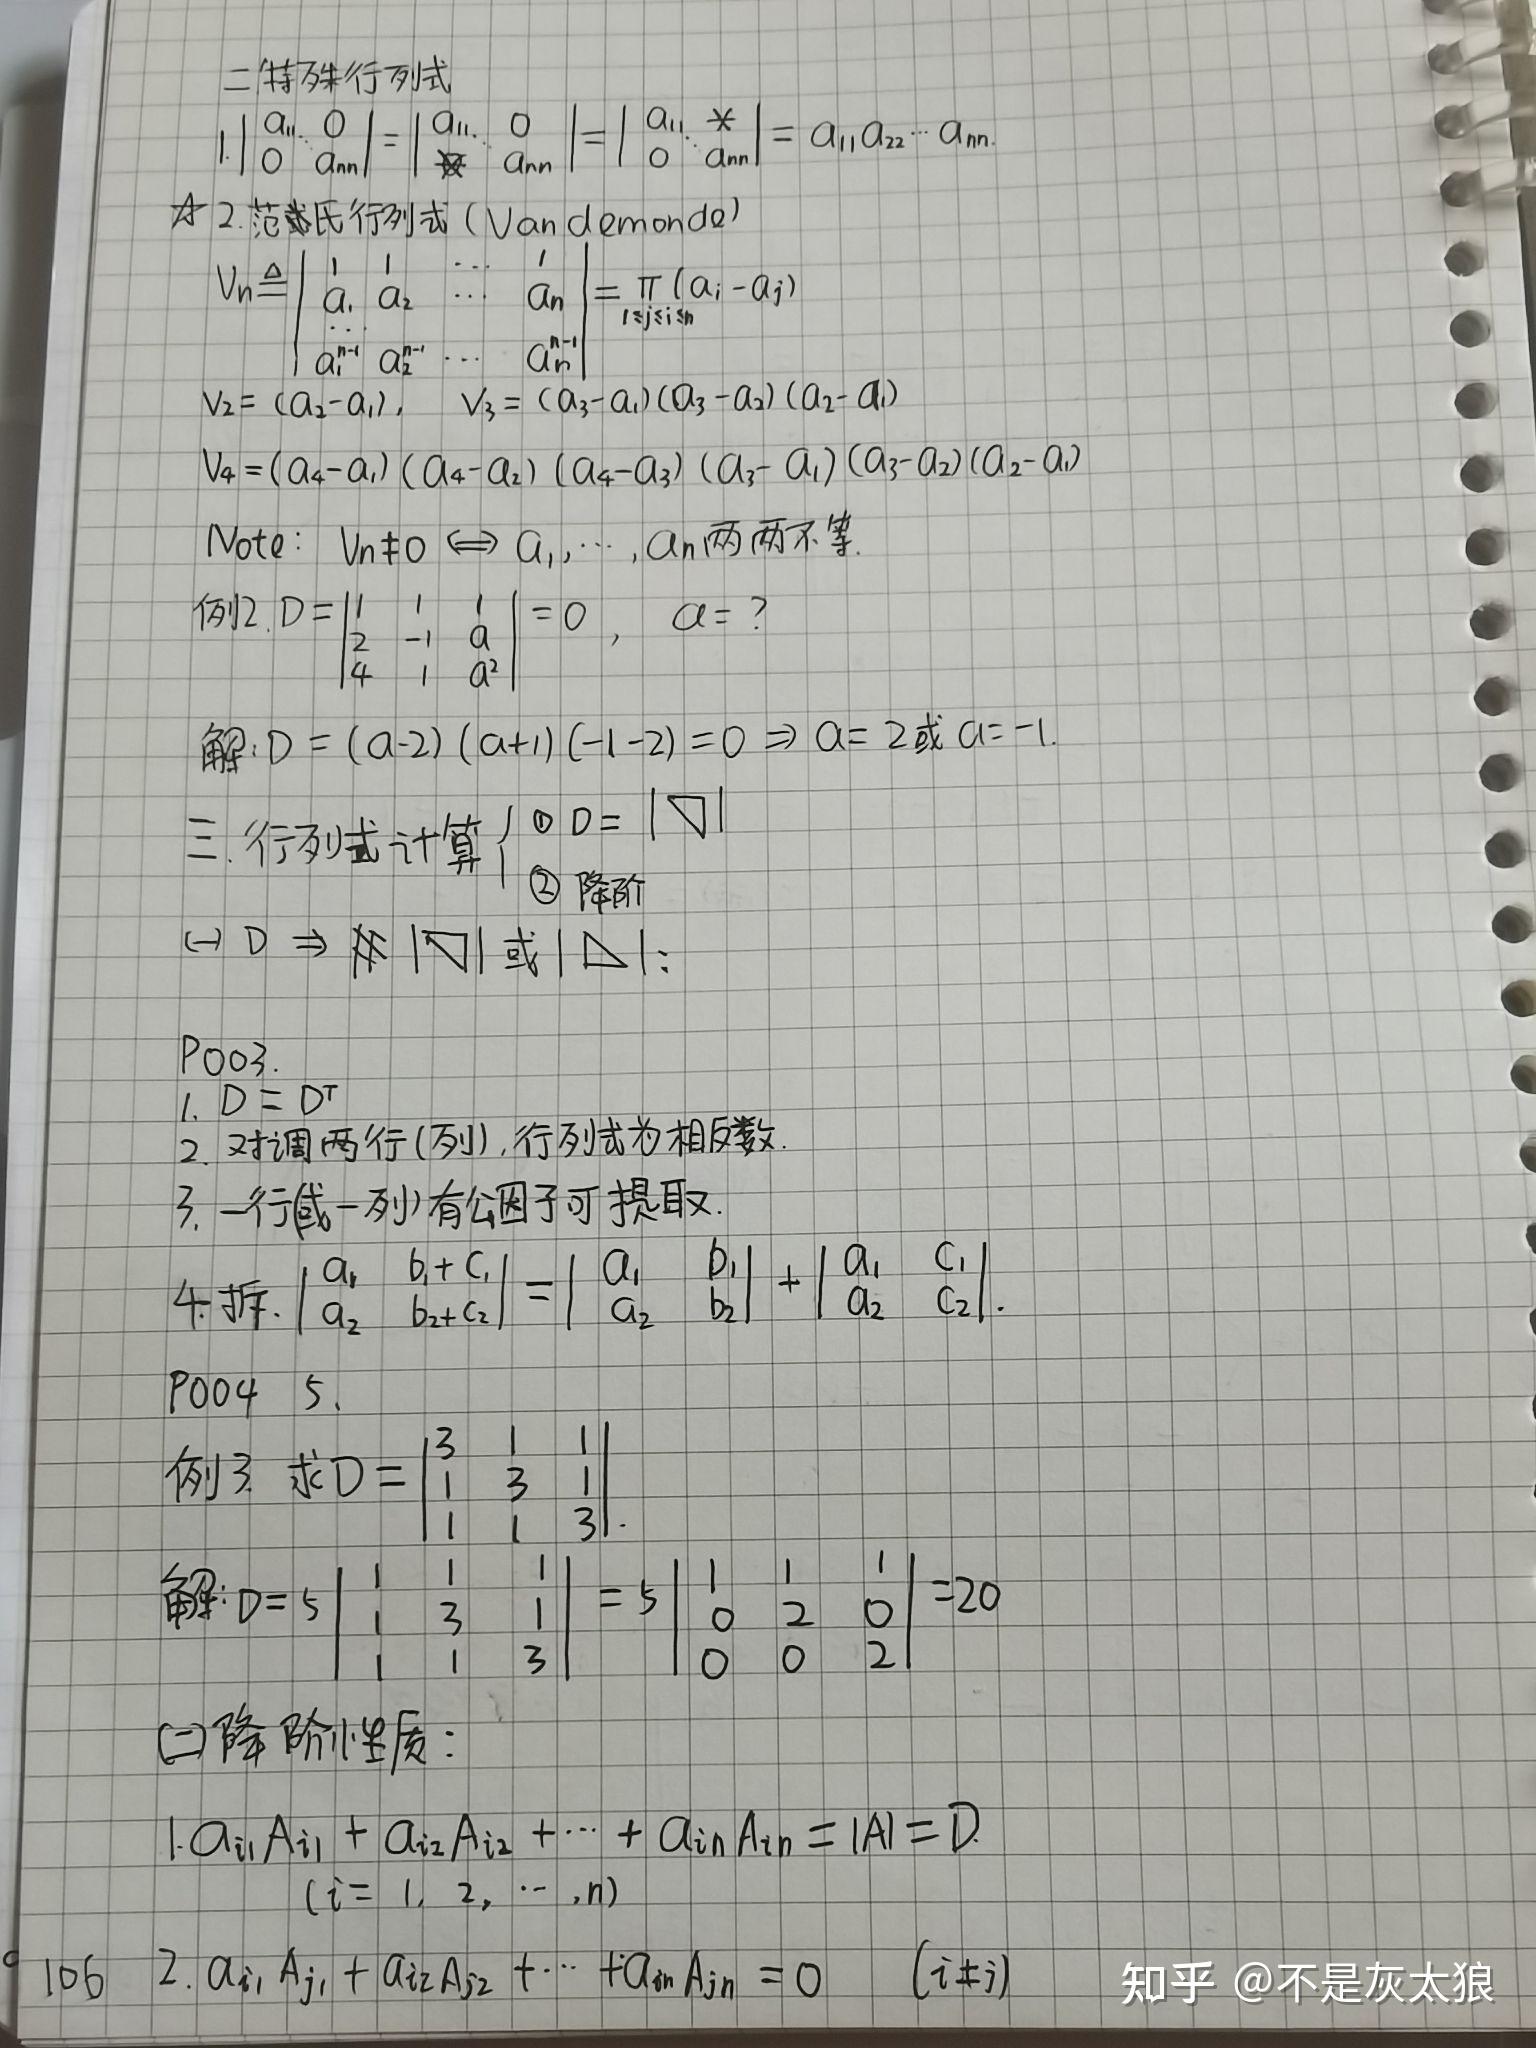 二 特殊行列式
1. | a₁₁ ⋱ 0 ; 0 aₙₙ | = | a₁₁ ⋱ 0 ; * aₙₙ | = | a₁₁ ⋱ * ; 0 aₙₙ | = a₁₁a₂₂⋯aₙₙ.
☆ 2. 范氏行列式 (Vandemonde)
Vₙ ≜ | 1 1 ⋯ 1 ; a₁ a₂ ⋯ aₙ ; ⋯ ; a₁ⁿ⁻¹ a₂ⁿ⁻¹ ⋯ aₙⁿ⁻¹ | = π (aᵢ-aⱼ) 1≤j≤i≤n
V₂ = (a₂-a₁), V₃ = (a₃-a₁)(a₃-a₂)(a₂-a₁)
V₄ = (a₄-a₁)(a₄-a₂)(a₄-a₃)(a₃-a₁)(a₃-a₂)(a₂-a₁)
Note: Vₙ≠0 ⟺ a₁, ⋯, aₙ两两不等.
例2. D = | 1 1 1 ; 2 -1 a ; 4 1 a² | = 0, a = ?
解: D = (a-2)(a+1)(-1-2) = 0 ⇒ a = 2或 a = -1.
三. 行列式计算 { ① D = |▽|
② 降阶
(一) D ⇒ |▽| 或 |◺| :
P003.
1. D = Dᵀ
2. 对调两行(列), 行列式为相反数.
3. 一行(或一列)有公因子可提取.
4. 拆. | a₁ b₁+c₁ ; a₂ b₂+c₂ | = | a₁ b₁ ; a₂ b₂ | + | a₁ c₁ ; a₂ c₂ |.
P004 5.
例3. 求D = | 3 1 1 ; 1 3 1 ; 1 1 3 |.
解: D = 5 | 1 1 1 ; 1 3 1 ; 1 1 3 | = 5 | 1 1 1 ; 0 2 0 ; 0 0 2 | = 20
(二) 降阶性质:
1. aᵢ₁Aᵢ₁ + aᵢ₂Aᵢ₂ + ⋯ + aᵢₙAᵢₙ = |A| = D.
(i = 1, 2, ⋯, n)
106 2. aᵢ₁Aⱼ₁ + aᵢ₂Aⱼ₂ + ⋯ + aᵢₙAⱼₙ = 0 (i≠j)
知乎 @不是灰太狼